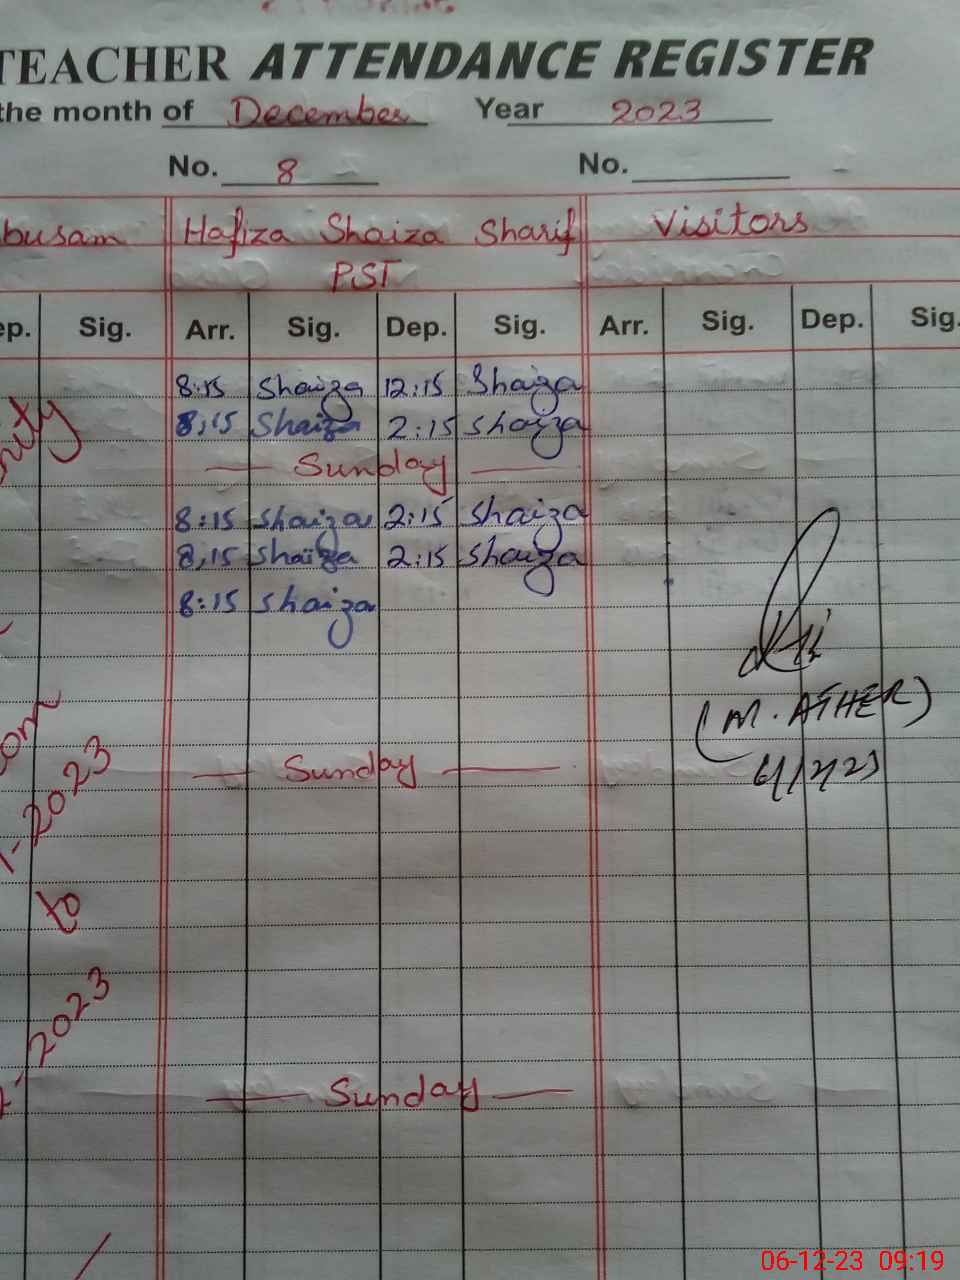 TEACHER ATTENDANCE REGISTER
the month of December Year 2023
No. 8 No.
busam Hafiza Shaiza Sharif Visitors
PST
ep. Sig. Arr. Sig. Dep. Sig. Arr. Sig. Dep. Sig.
8:15 Shaiza 12:15 Shaiza
8:15 Shaiza 2:15 Shaiza
Sunday
8:15 Shaiza 2:15 Shaiza
8:15 Shaiza 2:15 Shaiza
8:15 Shaiza
(M. ATHER)
Sunday
6/12/23
-2023
to
-2023
Sunday
06-12-23 09:19